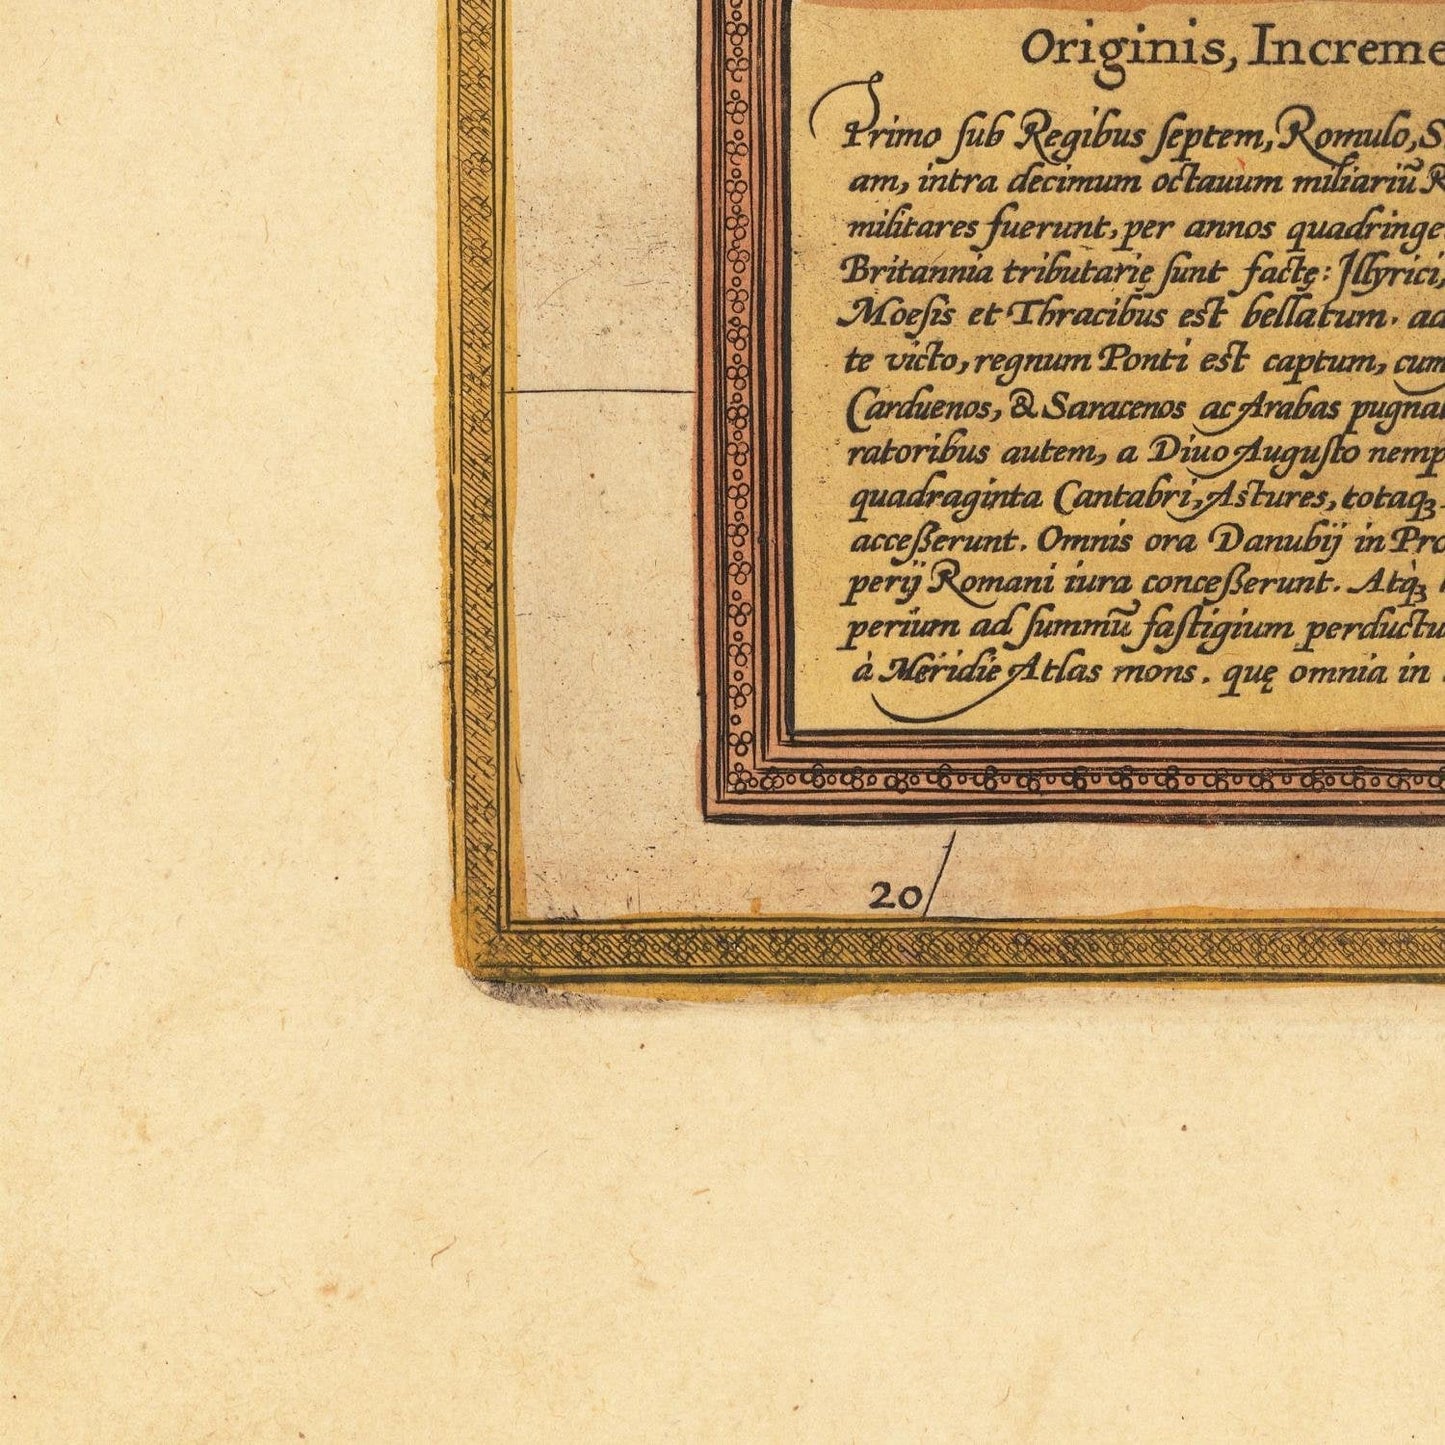 Originis, Increme
Primo ſub Regibus ſeptem, Romulo, S
am, intra decimum octauum miliariũ R
militares fuerunt, per annos quadringe
Britannia tributarię ſunt factę: Illyrici,
Moeſis et Thracibus est bellatum. ad
te victo, regnum Ponti est captum, cum
Carduenos, & Saracenos ac Arabas pugna
ratoribus autem, a Diuo Auguſto nemp
quadraginta Cantabri, Astures, totaqꝫ
acceßerunt. Omnis ora Danubij in Pro
perij Romani iura conceßerunt. Atqꝫ
perium ad ſummũ faſtigium perductu
à Meridie Atlas mons. quę omnia in
20